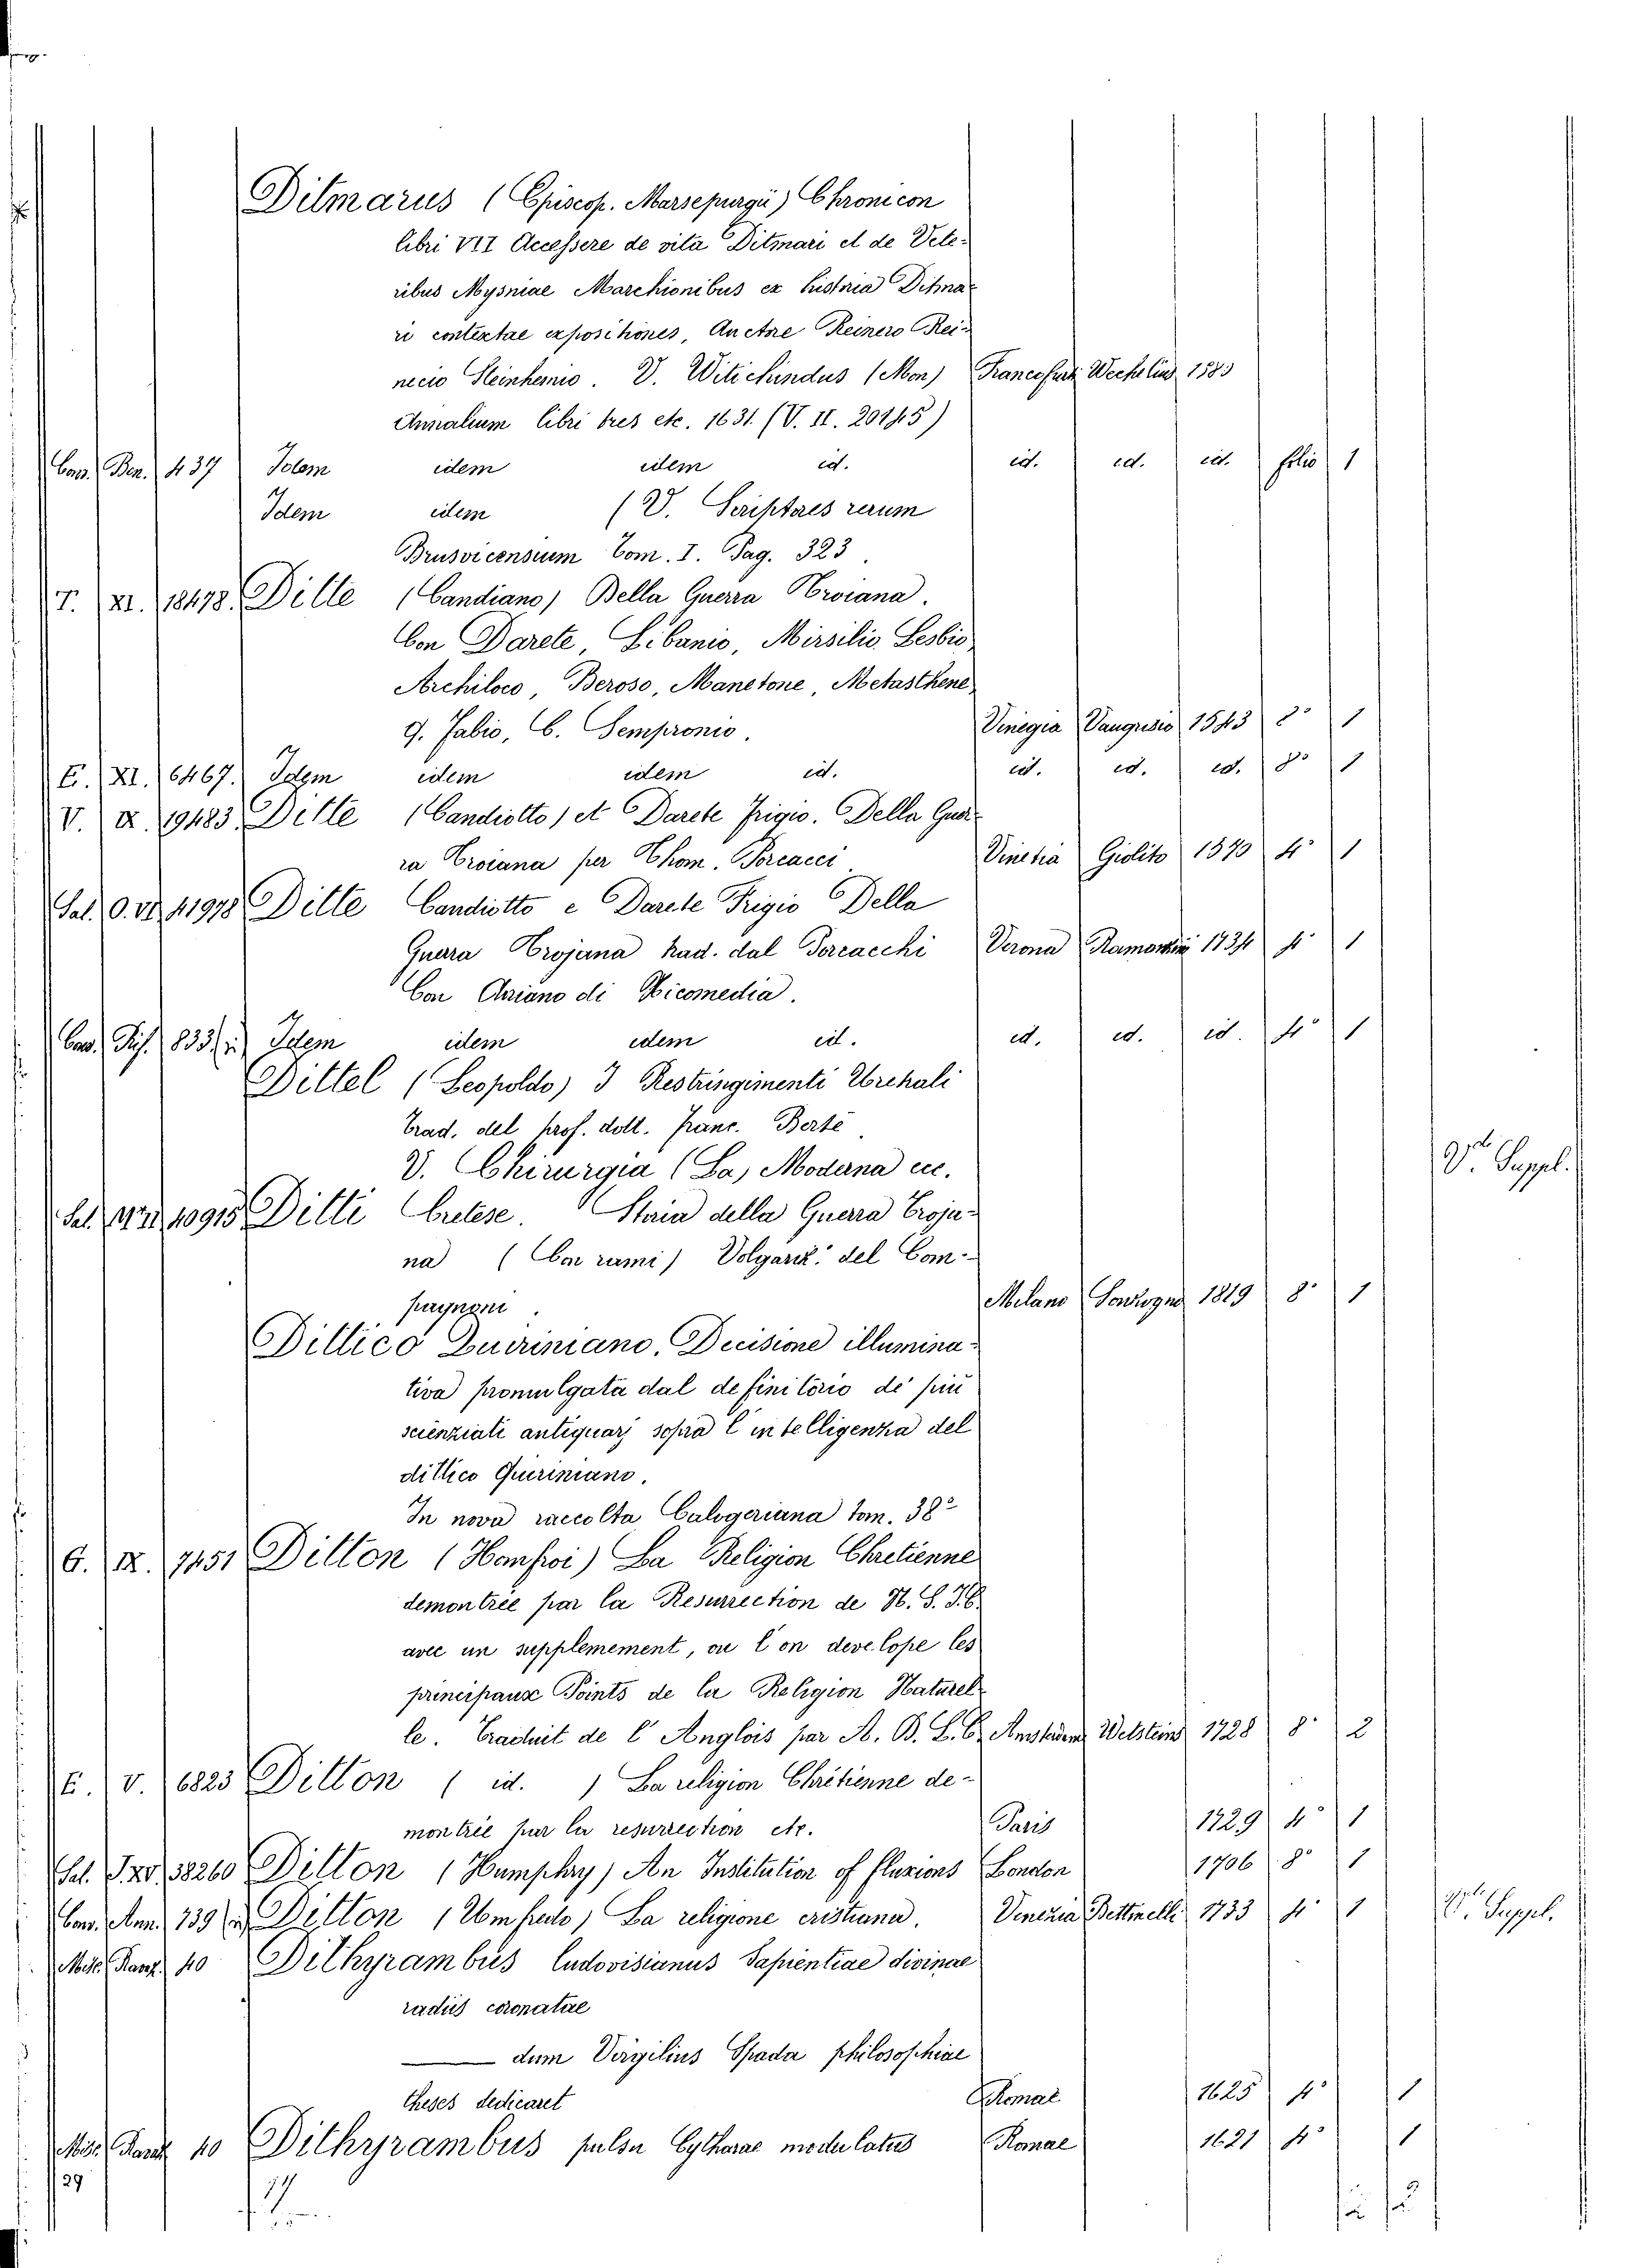 Ditmarus (Episcop. Marsepurgii) Chronicon
libri VII Accessere de vita Ditmari et de Vete-
ribus Mysniae Marchionibus ex historia Ditma-
ri contextae expositiones, Auctore Reinero Rei-
necio Steinhemio. V. Witichindus (Mon) Francofurt Wechelius 1583
Annalium libri tres etc. 1631. (V. II. 20145)
Cass. Ben. 437 Idem idem idem id. id. id. id. folio 1
Idem idem (V. Scriptores rerum
Brusvicensium Tom. I. Pag. 323.
T. XI. 18478. Ditte (Candiano) Bella Guerra Troiana.
Con Darete, Libanio, Mirsilio Lesbio,
Archiloco, Beroso, Manetone, Metasthene,
Q. Fabio, C. Sempronio. Vinegia Vaugrisio 1543 8° 1
E. XI. 6467. Idem idem idem id. id. id. id. 8° 1
V. IX. 19483. Ditte (Candiotto) et Darete Frigio. Della Guer-
ra Troiana per Thom. Porcacci. Vinetia Giolito 1570 4° 1
Sal. O. VI. 41978 Ditte Candiotto e Darete Frigio Della
Guerra Trojana trad. dal Porcacchi Verona Ramanzini 1734 4° 1
Con Ariano di Nicomedia.
Cass. Pis. 833 Idem idem idem id. id. id. id. 4° 1
Dittel (Leopoldo) I Restringimenti Uretrali
Trad. del prof. dott. Franc. Bertè.
V. Chirurgia (La) Moderna ecc. V. Suppl.
Sal. 40915 Ditti Cretese. Storia della Guerra Troja-
na (Con rami) Volgariz. del Com-
pagnoni. Milano Sonzogno 1819 8° 1
Dittico Quiriniano. Decisione illumina-
tiva promulgata dal definitorio de' più
scienziati antiquarj sopra l'intelligenza del
dittico Quiriniano.
In nova raccolta Calogeriana tom. 38°
G. IX. 7451 Ditton (Homfroi) La Religion Chretienne
demontrée par la Resurrection de N. S. J. C.
avec un supplemement, ou l'on develope les
principaux Points de la Religion Naturel-
le. Traduit de l'Anglois par A. B. L. C. Amsterdam Welsteins 1728 8° 2
E. V. 6823 Ditton (id.) La religion Chrétienne de-
montrée par la resurrection etc. Paris 1729 4° 1
Sal. I. XV. 38260 Ditton (Humphry) An Institution of fluxions London 1706 8° 1
Cass. Ann. 139 Ditton (Umfredo) La religione cristiana. Venezia Bettinelli 1733 4° 1 V. Suppl.
Misc. Ranz. 40 Dithyrambus ludovisianus Sapientiae divinae
radiis coronatae
dum Virgilius Spada philosophiae
theses dedicaret Romae 1625 4° 1
Misc. Ranz. 40 Dithyrambus pulsu Cytharae modulatus Romae 1621 4° 1
29